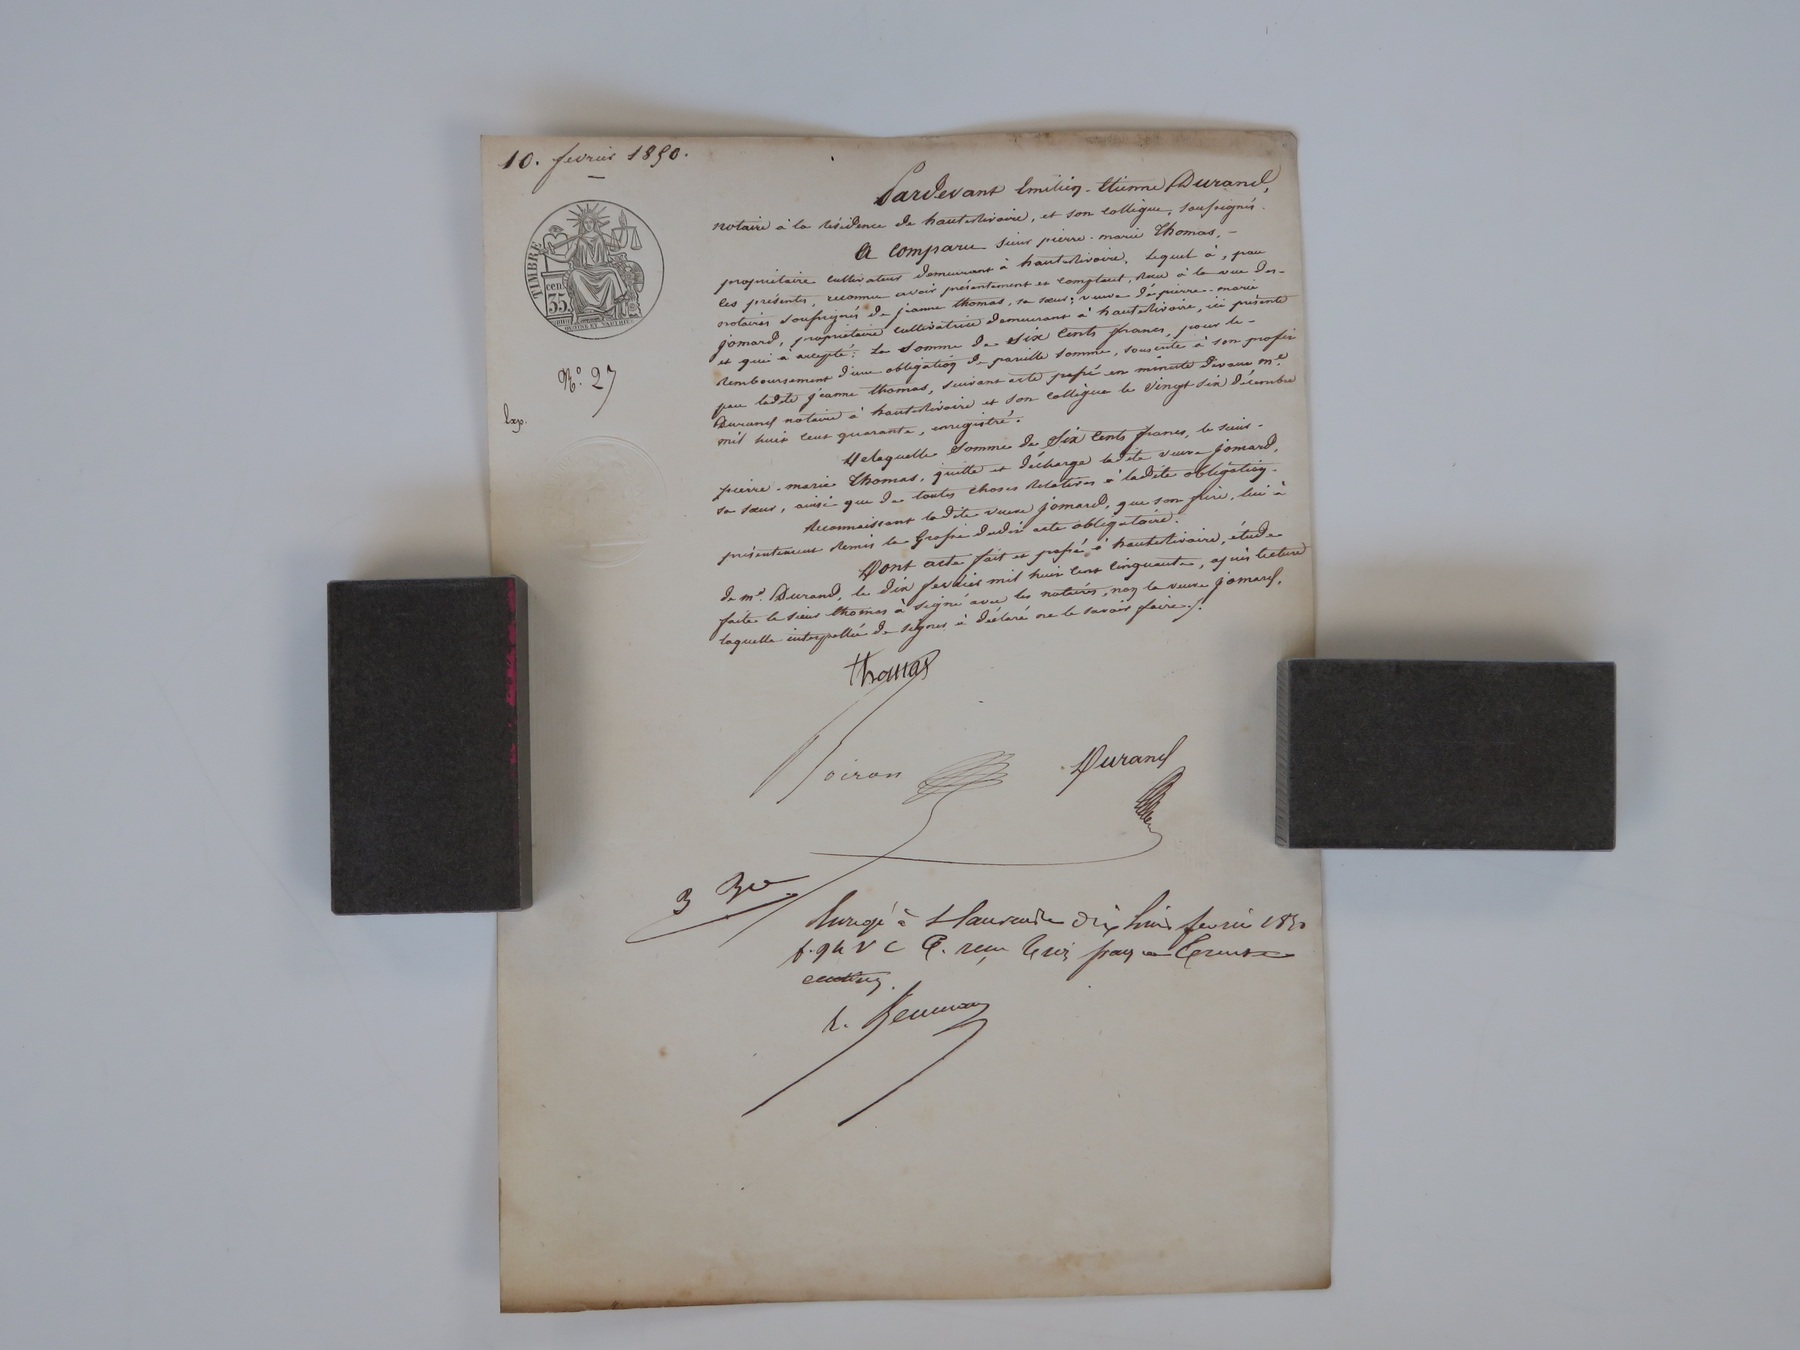 10. fevrier 1850.
Pardevant Emilien-Etienne Durand,
notaire à la résidence de hauterivoire, et son collègue, soussignés.
A comparu sieur pierre-marie Thomas,
propriétaire cultivateur demeurant à hauterivoire, lequel à, par
TIMBRE
35 cent
SEINE ET
ces présentes, reconnu avoir présentement et comptant, reçu à la vue des
notaires soussignés de jeanne thomas, sa sœur, veuve de pierre-marie
jomard, propriétaire cultivatrice demeurant à hauterivoire, ici présente
et qui à accepté: La somme de Six Cents francs, pour le
remboursement d'une obligation de pareille somme, souscrite à son profit
N.o 27
par ladite jeanne thomas, suivant acte passé en minute devant me
Durand notaire à hauterivoire et son collègue le vingt six décembre
Exp.
mil huit cent quarante, enregistré.
De laquelle Somme de Six Cents francs, le sieur
pierre-marie Thomas, quitte et décharge ladite veuve jomard,
sa sœur, ainsi que de toutes choses relatives à ladite obligation.
Reconnaissant ladite veuve jomard, que son frère, lui à
présentement remis la Grosse dudit acte obligatoire.
Dont acte fait et passé à hauterivoire, étude
de me. Durand, le dix fevrier mil huit cent cinquante, après lecture
faite le sieur thomas à signé avec les notaires, non la veuve jomard,
laquelle interpellée de signer à déclaré ne le savoir faire./.
thomas
Durand
3
Enregé à St Laurent dix huit fevrier 1850
f. 94 V C 6. reçu trois francs trente
centimes.